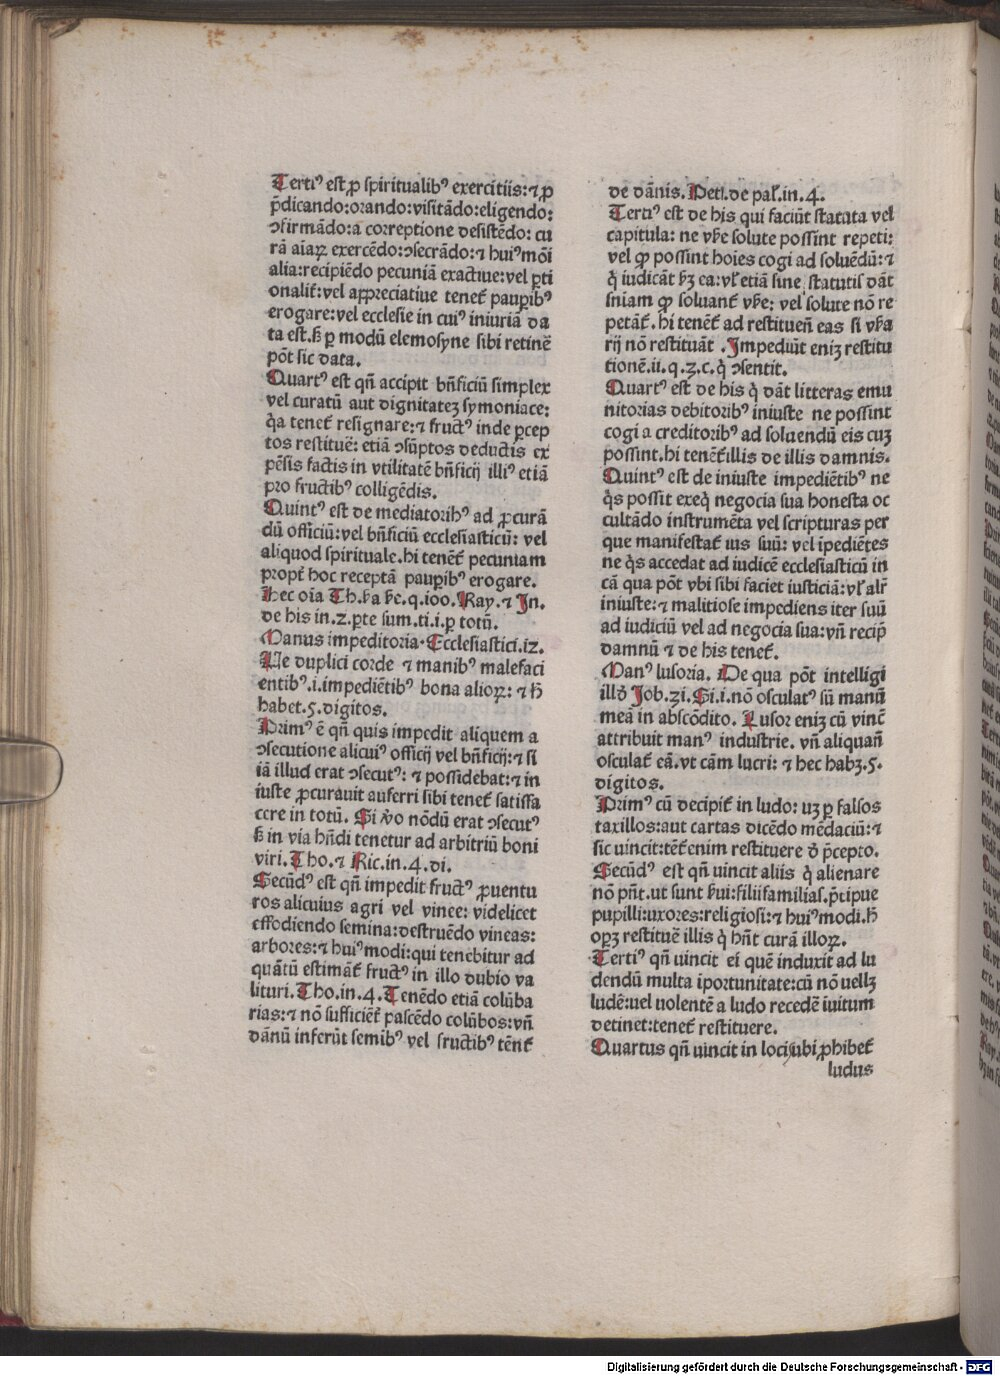 Tertiꝰ est ꝓ spiritualibꝰ exercitiis:⁊ ꝓ
p̄dicando:orando:visitādo:eligendo:
ↄfirmādo:a correptione desistēdo: cu
rā aīaꝝ exercēdo:ↄsecrādo:⁊ huiꝰmōi
alia:recipiēdo pecuniā exactiue:vel ꝑti
onalit̄:vel appreciatiue tenet̄ pauꝑibꝰ
erogare:vel ecclesie in cuiꝰ iniuriā da
ta est.ꝭ ꝑ modū elemosyne sibi retinē
pōt sic data.
Quartꝰ est qn̄ accipit bn̄ficiū simplex
vel curatū aut dignitateꝫ symoniace:
q̇a tenet̄ resignare:⁊ fructꝰ inde ꝑcep
tos restituē: etiā ↄsūptos deductis ex
pēsis factis in vtilitatē bn̄ficij illiꝰ etiā
pro fructibꝰ colligēdis.
Quintꝰ est de mediatoribꝰ ad ꝓcurā
dū officiū:vel bn̄ficiū ecclesiasticū: vel
aliquod spirituale.hi tenēt̄ pecuniam
propt̄ hoc receptā pauꝑibꝰ erogare.
Hec oīa Th.ẜa ẜe.q.ioo.Ray.⁊ In.
de his in.2.ꝑte sum.ti.i.ꝑ totū.
Manus impeditoria. Ecclesiastici.i2.
Ue duplici corde ⁊ manibꝰ malefaci
entibꝰ.i.impediētibꝰ bona alioꝝ: ⁊ h̄
habet.5.digitos.
Primꝰ ē qn̄ quis impedit aliquem a
ↄsecutione alicuiꝰ officij vel bn̄ficij:⁊ si
iā illud erat ↄsecutꝰ: ⁊ possidebat:⁊ in
iuste ꝓcurauit auferri sibi tenet̄ satisfa
cere in totū. Si v̊o nōdū erat ↄsecutꝰ
ẜ in via hn̄di tenetur ad arbitriū boni
viri. Tho.⁊ Ric.in.4.di.
Secūdꝰ est qn̄ impedit fructꝰ ꝓuentu
ros alicuius agri vel vinee: videlicet
effodiendo semina:destruēdo vineas:
arbores:⁊ huiꝰmodi:qui tenebitur ad
quātū estimāt̄ fructꝰ in illo dubio va
lituri.Tho.in.4.Tenēdo etiā colūba
rias:⁊ nō sufficiēt̄ pascēdo colūbos:vn̄
dānū inferūt semibꝰ vel fructibꝰ tēnt̄
de dānis. Petl.de pal̄.in.4.
Tertiꝰ est de his qui faciūt statuta vel
capitula: ne vẜe solute possint repeti:
vel ꝙ possint hoīes cogi ad soluēdū:⁊
q̇ iudicāt ẜꝫ ea:vl̄ etiā sine statutis dāt
sn̄iam ꝙ soluant̄ vẜe: vel solute nō re
petāt̄.hi tenēt̄ ad restituen̄ eas si vẜa
rij nō restituāt .Impediūt eniꝫ restitu
tionē.ii.q.3.c.q̇ ↄsentit.
Quartꝰ est de his q̇ dāt litteras emu
nitorias debitoribꝰ iniuste ne possint
cogi a creditoribꝰ ad soluendū eis cuꝫ
possint.hi tenēt̄ illis de illis damnis.
Quintꝰ est de iniuste impediētibꝰ ne
q̇s possit exeq̇ negocia sua honesta oc
cultādo instrumēta vel scripturas per
que manifestat̄ ius suū: vel ipediētes
ne q̇s accedat ad iudicē ecclesiasticū in
cā qua pōt vbi sibi faciet iusticiā:vl̄ alr̄
iniuste:⁊ malitiose impediens iter suū
ad iudiciū vel ad negocia sua:vn̄ recip̄
damnū ⁊ de his tenet̄.
Manꝰ lusoria. De qua pōt intelligi
illḋ Job.3i.Si.i.nō osculatꝰ sū manū
meā in abscōdito. Lusor eniꝫ cū vinc̄
attribuit manꝰ industrie. vn̄ aliquan̄
osculat̄ eā.vt cām lucri: ⁊ hec habꝫ.5.
digitos.
Primꝰ cū decipit̄ in ludo: uꝫ ꝑ falsos
taxillos:aut cartas dicēdo mēdaciū:⁊
sic uincit:tēt̄ enim restituere ḋ p̄cepto.
Secūdꝰ est qn̄ uincit aliis q̇ alienare
nō pn̄t.ut sunt ẜui:filiifamilias.p̄cipue
pupilli:uxores:religiosi:⁊ huiꝰmodi.h̄
opꝫ restituē illis q̇ hn̄t curā illoꝝ.
Tertiꝰ qn̄ uincit ei quē induxit ad lu
dendū multa iportunitate:cū nō uellꝫ
ludē:uel uolentē a ludo recedē iuitum
detinet:tenet̄ restituere.
Quartus qn̄ uincit in locis ubi ꝓhibet̄
ludus
Digitalisierung gefördert durch die Deutsche Forschungsgemeinschaft - DFG